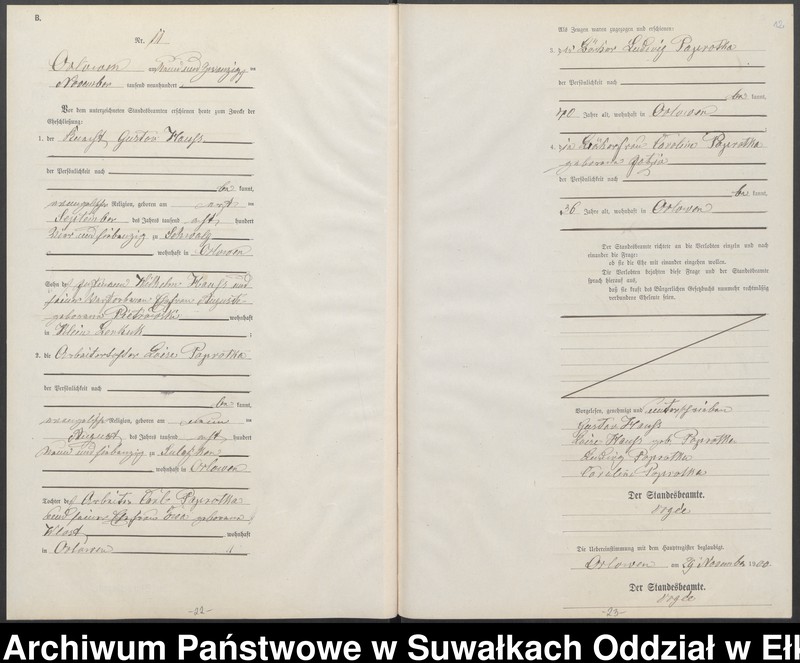 B.
Nr. 11
Orlowen am neun und zwanzigsten
November tausend neunhundert
Vor dem unterzeichneten Standesbeamten erschienen heute zum Zwecke der
Eheschließung:
1. der Knecht Gustav Kauß
der Persönlichkeit nach
be kannt,
evangelischer Religion, geboren am acht
September des Jahres tausend acht hundert
vier und siebenzig zu Schwalg
, wohnhaft in Orlowen
Sohn des Wilhelm Kauß und
seiner verstorbenen Ehefrau Auguste
geborene Pietrowski wohnhaft
in Klein
2. die Arbeitertochter Loise Paprotka
der Persönlichkeit nach
be kannt,
evangelischer Religion, geboren am neun
August des Jahres tausend acht hundert
neun und siebenzig zu
, wohnhaft in Orlowen
Tochter des Arbeiter Carl Paprotka
und seiner Ehefrau Eva geborene
Klost wohnhaft
in Orlowen
-22-
12.
Als Zeugen waren zugezogen und erschienen:
3. der Ludwig Paprotka
der Persönlichkeit nach
be kannt,
40 Jahre alt, wohnhaft in Orlowen
4. die Carolin Paprotka
geborene
der Persönlichkeit nach
be kannt,
36 Jahre alt, wohnhaft in Orlowen
Der Standesbeamte richtete an die Verlobten einzeln und nach
einander die Frage:
ob sie die Ehe mit einander eingehen wollen.
Die Verlobten bejahten diese Frage und der Standesbeamte
sprach hierauf aus,
daß sie kraft des Bürgerlichen Gesetzbuchs nunmehr rechtmäßig
verbundene Eheleute seien.
Vorgelesen, genehmigt und unterschrieben
Gustav Kauß
Loise Kauß geb. Paprotka
Ludwig Paprotka
Carolin Paprotka
Der Standesbeamte.
Die Uebereinstimmung mit dem Hauptregister beglaubigt.
Orlowen am 29. November 1900.
Der Standesbeamte.
-23-
Archiwum Państwowe w Suwałkach Oddział w Eł